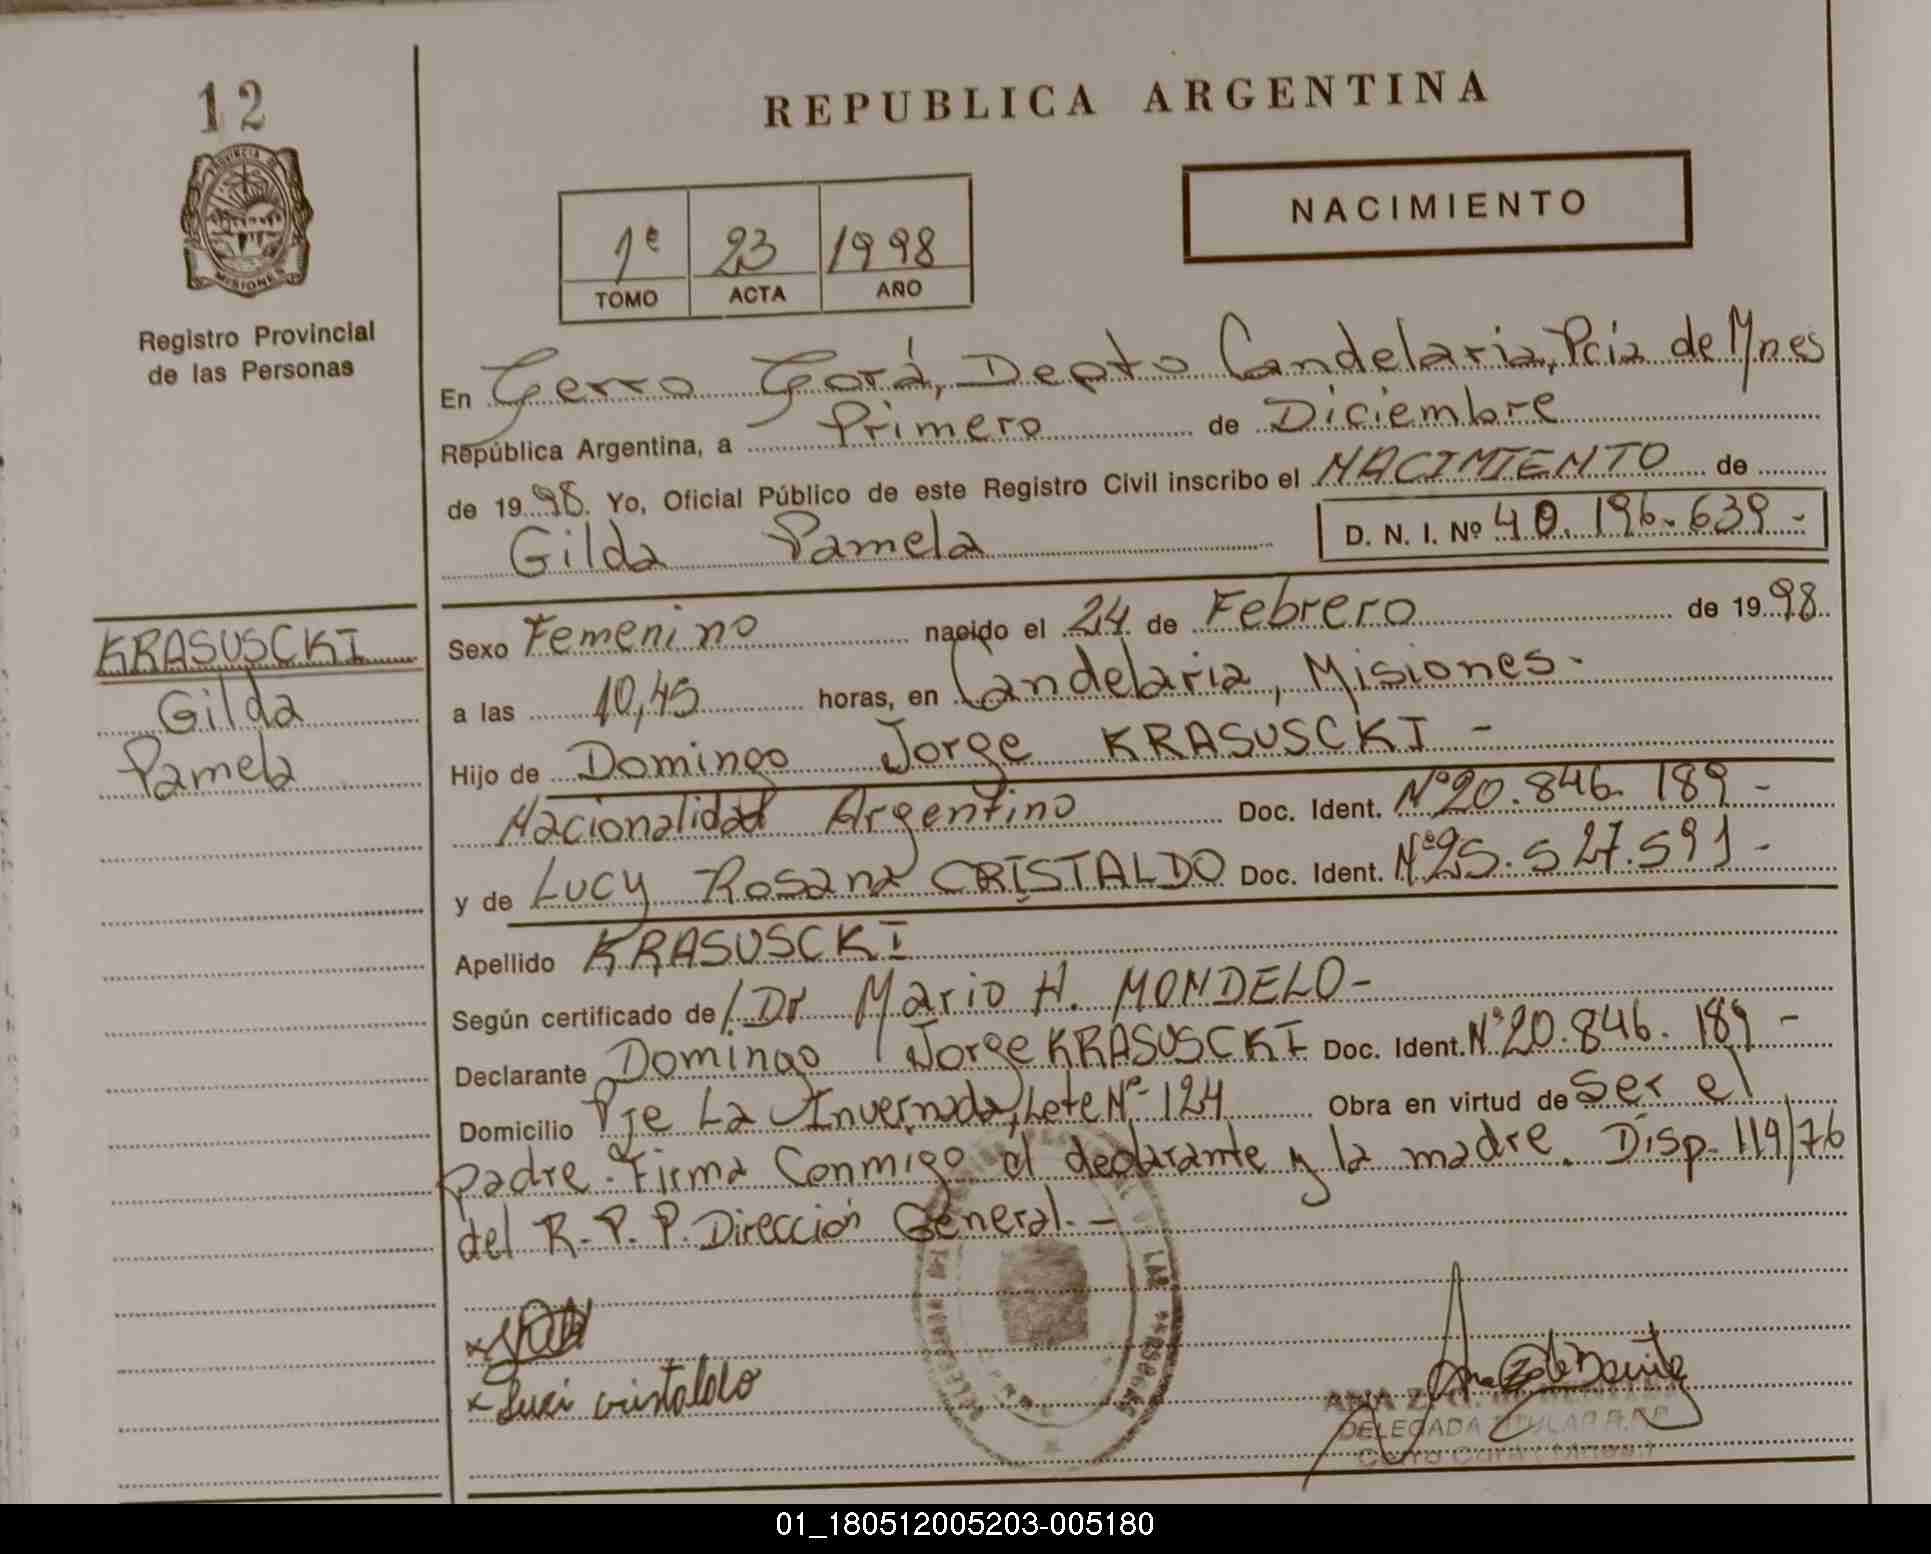 12
PROVINCIA DE
MISIONES
Registro Provincial
de las Personas
KRASUSCKI
Gilda
Pamela
REPUBLICA ARGENTINA
NACIMIENTO
1º 23 1998
TOMO ACTA AÑO
En Cerro Corá, Depto Candelaria, Pcia de Mnes
República Argentina, a Primero de Diciembre
de 1998. Yo, Oficial Público de este Registro Civil inscribo el NACIMIENTO de
Gilda Pamela D. N. I. Nº 40.196.639-
Sexo Femenino nacido el 24 de Febrero de 1998.
a las 10,45 horas, en Candelaria, Misiones-
Hijo de Domingo Jorge KRASUSCKI -
Nacionalidad Argentino Doc. Ident. Nº20.846.189-
y de Lucy Rosana CRISTALDO Doc. Ident. Nº25.527.591-
Apellido KRASUSCKI
Según certificado de /. Dr Mario H. MONDELO-
Declarante Domingo Jorge KRASUSCKI Doc. Ident. Nº20.846.189-
Domicilio Pje La Invernada, Lote Nº 124 Obra en virtud de Ser el
padre. Firma Conmigo el declarante y la madre. Disp. 119/76
del R. P. P. Dirección General.-
x
x Luci cristaldo
LAS PERSONAS
ANA
DELEGADA TITULAR R.P.P.
Cerro Corá (Mnes.)
01_180512005203-005180